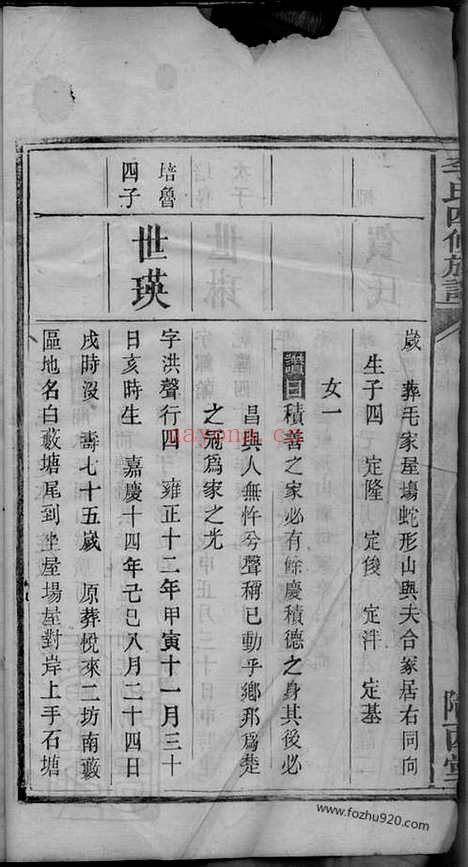 李氏四修族譜
隴西堂
歲 葬毛家屋場蛇形山與夫合冢居右同向
生子四 定隆 定俊 定泮 定基
女一
讚曰積善之家必有餘慶積德之身其後必
昌與人無忤兮聲稱已動乎鄉邦爲楚
之〇爲家之光
培魯
四子
世瑛
字洪聲行四 雍正十二年甲寅十一月三十
日亥時生 嘉慶十四年己巳八月二十四日
戌時沒 壽七十五歲 原葬悅來二坊南藪
區地名白藪塘尾到坐屋場屋對岸上手石塘
nayona.cn
www.fozhu920.com